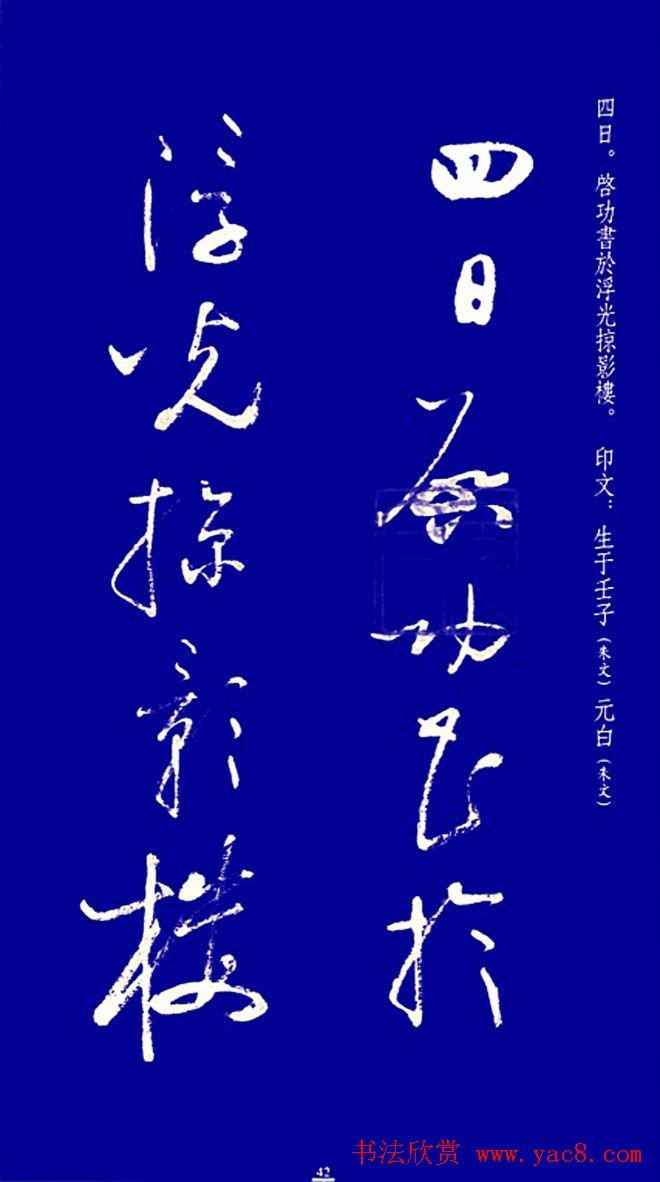 四日。啓功書於浮光掠影樓。 印文：生于壬子（朱文）元白（朱文）
四日啓功书於
浮光掠影楼
42
书法欣赏 www.yac8.com